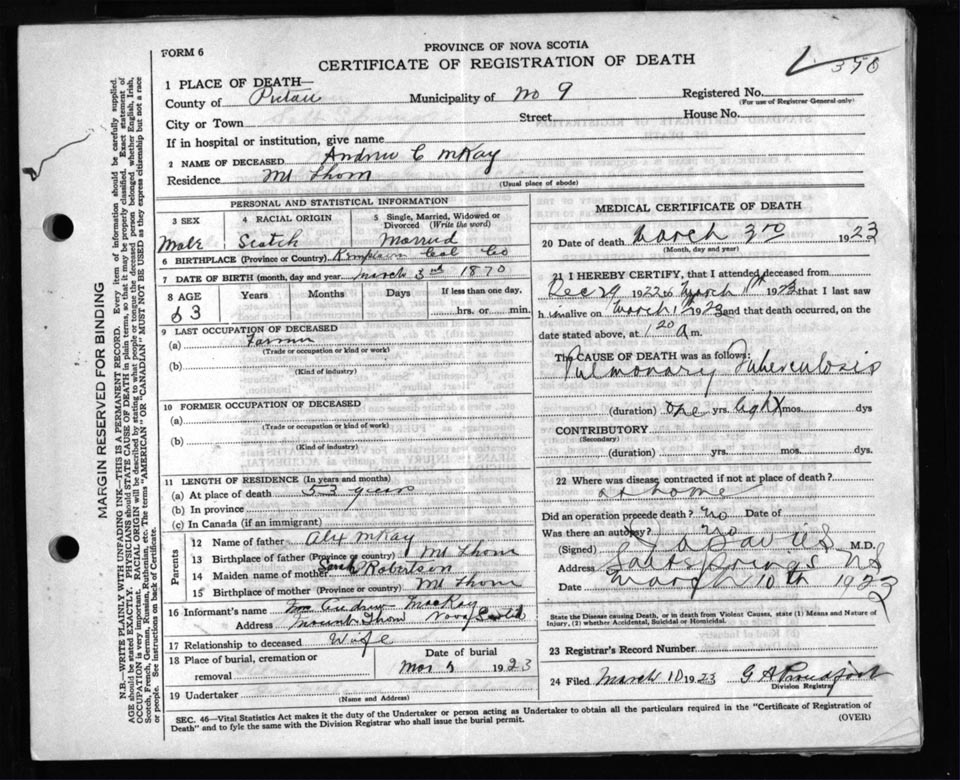 FORM 6
PROVINCE OF NOVA SCOTIA
CERTIFICATE OF REGISTRATION OF DEATH
376
1 PLACE OF DEATH—
County of Pictou Municipality of No 9 Registered No.
(For use of Registrar General only)
City or Town Street House No.
If in hospital or institution, give name
2 NAME OF DECEASED Andrew C McKay
Residence Mt Thom
(Usual place of abode)
PERSONAL AND STATISTICAL INFORMATION
3 SEX 4 RACIAL ORIGIN 5 Single, Married, Widowed or Divorced (Write the word)
Male Scotch Married
6 BIRTHPLACE (Province or Country) Kemptown Col Co
7 DATE OF BIRTH (month, day and year) March 3rd 1870
8 AGE Years Months Days If less than one day,
53 hrs. or min.
9 LAST OCCUPATION OF DECEASED
(a) Farmer
(Trade or occupation or kind or work)
(b)
(Kind of industry)
10 FORMER OCCUPATION OF DECEASED
(a)
(Trade or occupation or kind of work)
(b)
(Kind of Industry)
11 LENGTH OF RESIDENCE (In years and months)
(a) At place of death 53 years
(b) In province
(c) In Canada (if an immigrant)
Parents
12 Name of father Alex McKay
13 Birthplace of father (Province or country) Mt Thom
14 Maiden name of mother Sarah Robertson
15 Birthplace of mother (Province or country) Mt Thom
16 Informant's name Mrs Andrew MacKay
Address Mount Thom Nova Scotia
17 Relationship to deceased Wife
18 Place of burial, cremation or removal Date of burial
Mar 5 1923
19 Undertaker
(Name and Address)
MEDICAL CERTIFICATE OF DEATH
20 Date of death March 3rd 1923
(Month, day and year)
21 I HEREBY CERTIFY, that I attended deceased from
Dec 29 1922 to March 1st 1923 that I last saw
him alive on March 1st 1923 and that death occurred, on
date stated above, at 1 20 a m.
The CAUSE OF DEATH was as follows:
Pulmonary Tuberculosis
(duration) one yrs. eight mos. dys
CONTRIBUTORY
(Secondary)
(duration) yrs. mos. dys
22 Where was disease, contracted if not at place of death?
at home
Did an operation precede death? no Date of
Was there an autopsy? no
(Signed) Davies M.D.
Address Saltsprings NS
Date March 10th 1923
State the Disease causing Death, or in death from Violent Causes, state (1) Means and Nature of
Injury, (2) whether Accidental, Suicidal or Homicidal.
23 Registrar's Record Number
24 Filed March 10 1923 G A Proudfoot
Division Registrar
SEC. 46—Vital Statistics Act makes it the duty of the Undertaker or person acting as Undertaker to obtain all the particulars required in the "Certificate of Registration of
Death" and to fyle the same with the Division Registrar who shall issue the burial permit.
(OVER)
MARGIN RESERVED FOR BINDING
N.B.—WRITE PLAINLY WITH UNFADING INK—THIS IS A PERMANENT RECORD. Every item of information should be carefully supplied.
AGE should be stated EXACTLY. PHYSICIANS should STATE CAUSE OF DEATH in plain terms, so that it may be properly classified. Exact statement of
OCCUPATION is very important. RACIAL ORIGIN will be described by stating to what people or tongue the deceased person belonged whether English, Irish,
Scotch, French, German, Russian, Ruthenian, etc. The terms "AMERICAN" OR "CANADIAN" MUST NOT BE USED as they express citizenship but not a race
or people. See instructions on back of Certificate.